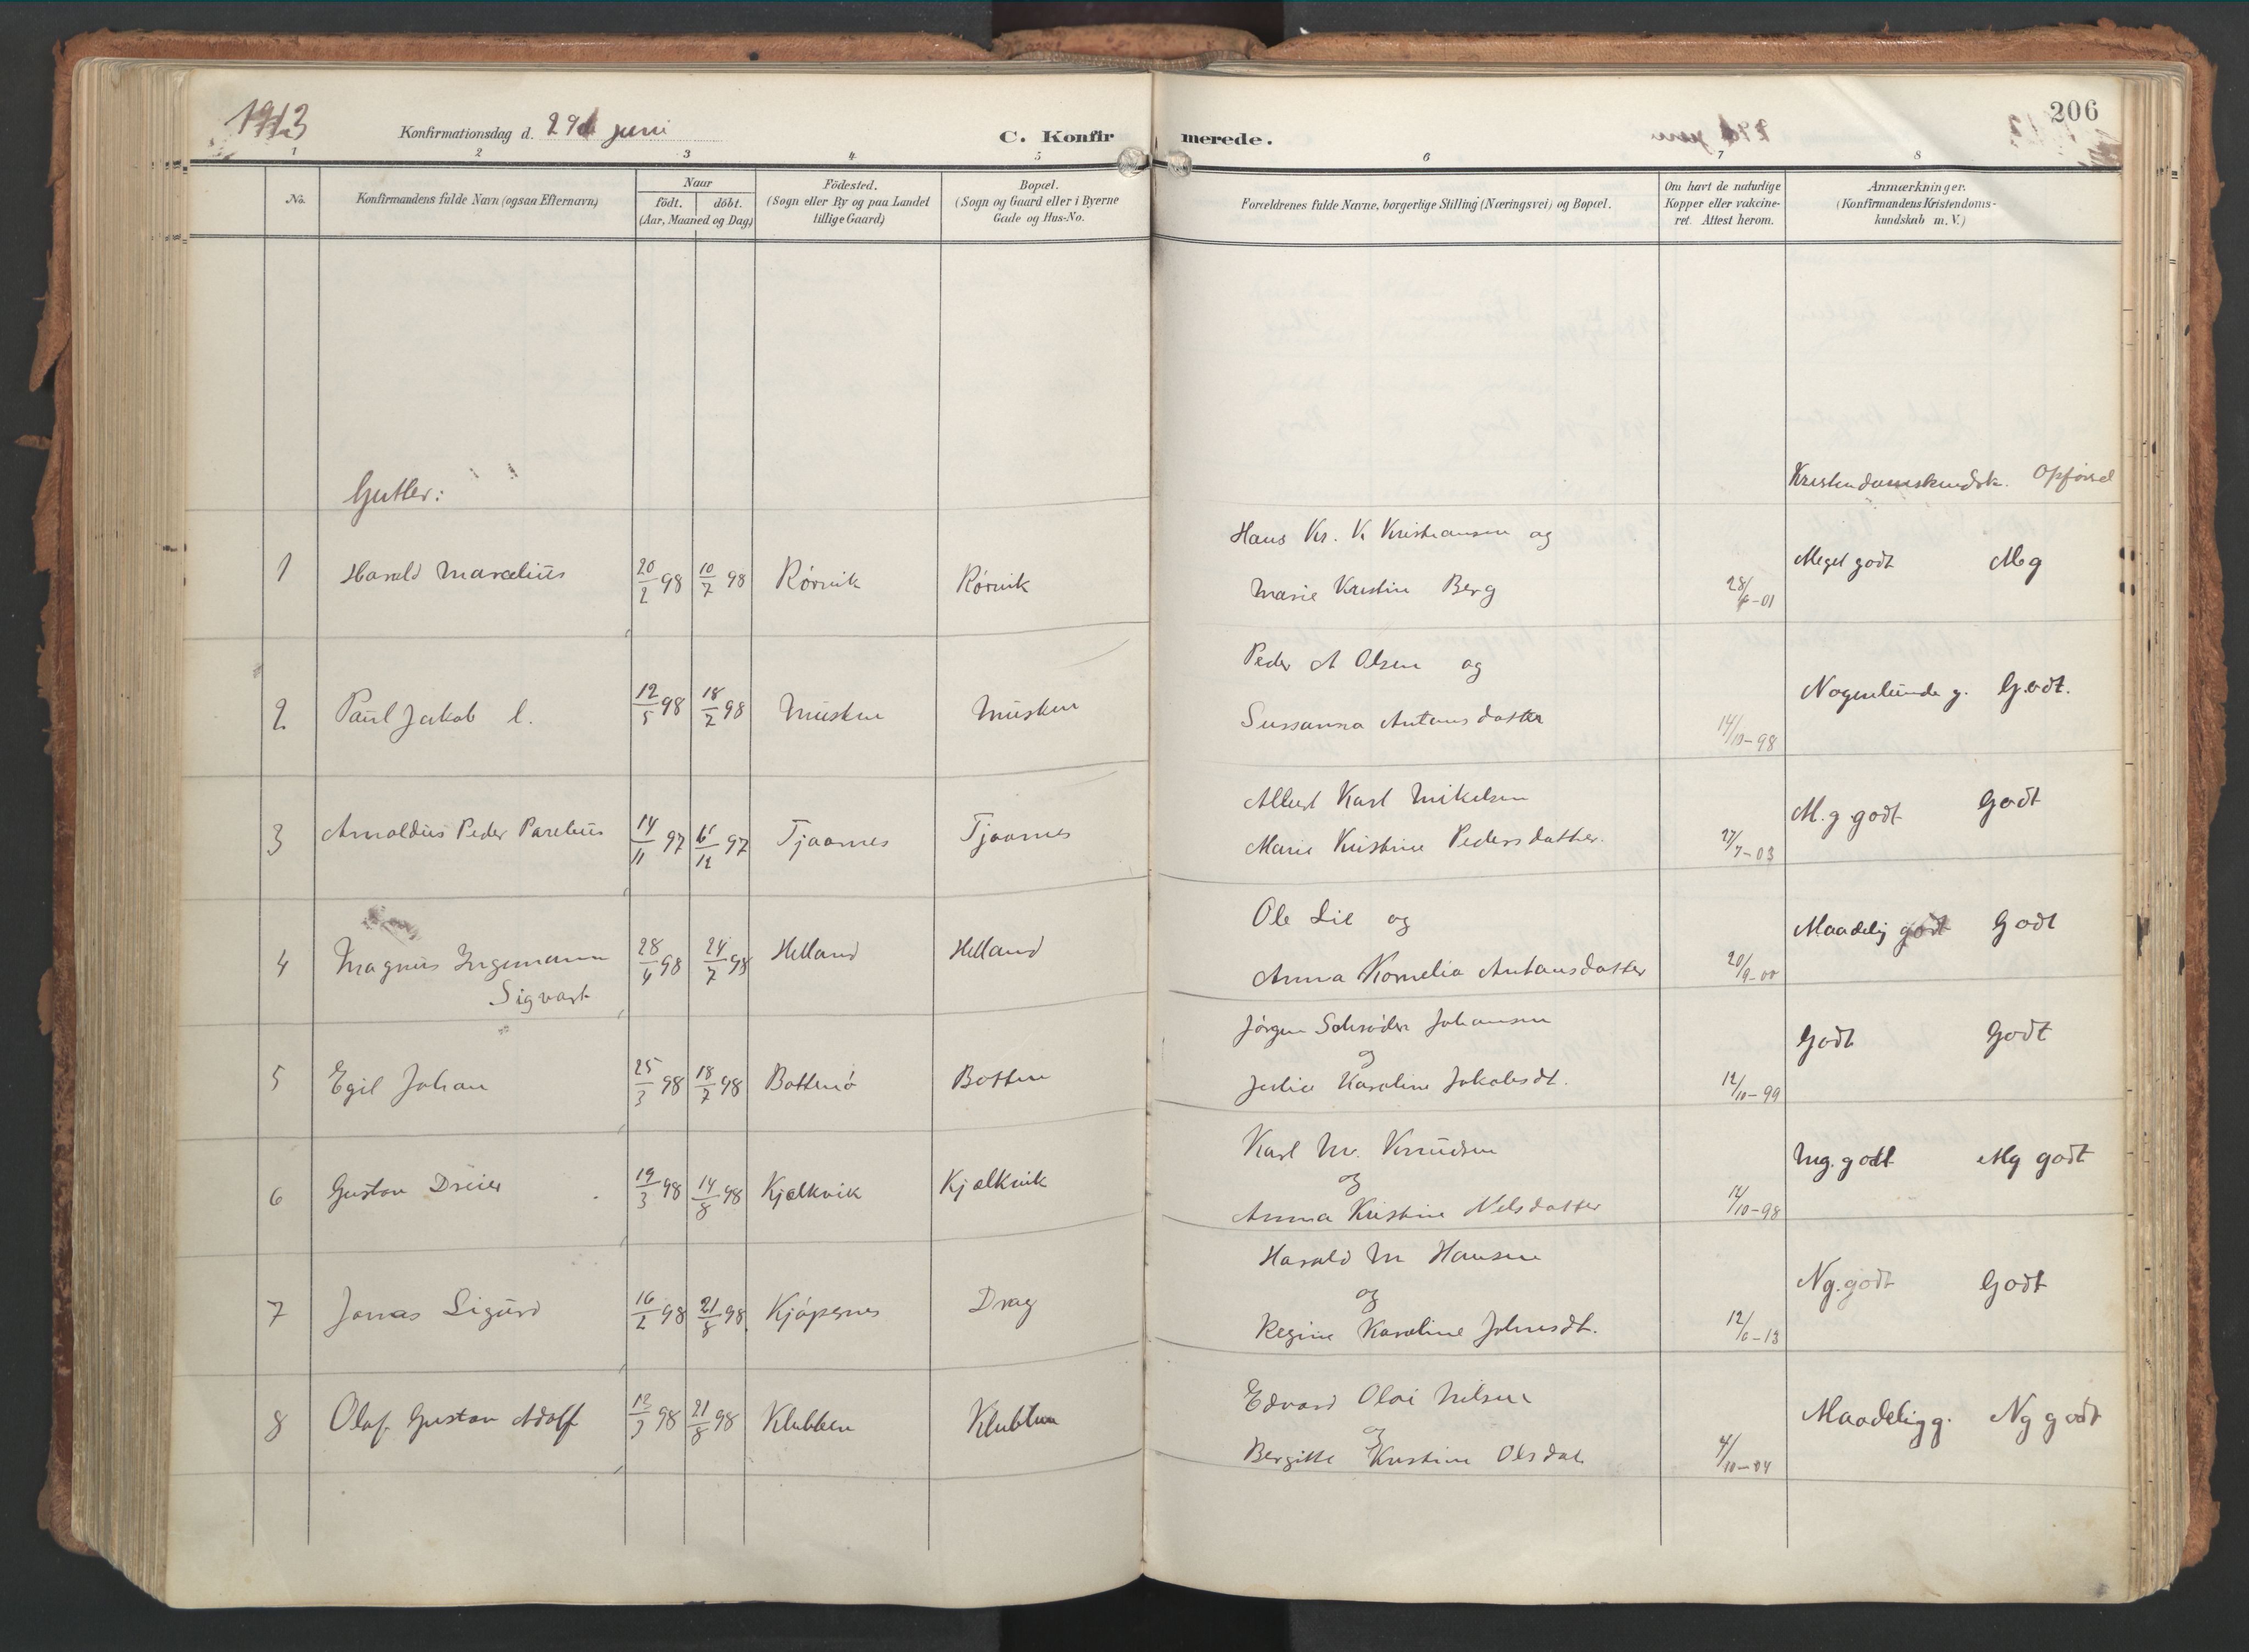 1913
Konfirmationsdag d. 29d juni
C. Konfirmerede.
206
1 2 3 4 5 6 7 8
No.
Konfirmandens fulde Navn (ogsaa Efternavn)
Naar
födt. döbt.
(Aar, Maaned og Dag)
Födested.
(Sogn eller By og paa Landet
tillige Gaard)
Bopæl.
(Sogn og Gaard eller i Byerne
Gade og Hus-No.
Forældrenes fulde Navne, borgerlige Stilling (Næringsvei) og Bopæl.
Om havt de naturlige
Kopper eller vakcine-
ret. Attest herom.
Anmærkninger.
(Konfirmandens Kristendoms-
kundskab m. V.)
Gutter:
Kristendomskundsk. Opförsel
Hans Kr. K Kristiansen og
1 Harald Marselius 20/2 98 10/7 98 Rörvik Rörvik Meget godt Mg
Marie Kristine Berg 28/6-01
Peder A Olsen og
2 Paul Jakob 12/5 98 18/7 98 Musken Musken Nogenlunde g. Godt.
Sussanna Antonsdatter 14/10-98
Albert Karl Mikelsen
3 Arnoldus Peder Parelius 14/11 97 /12 97 Tjaarnes Tjaarnes M.g godt Godt
Marie Kristine Pedersdatter. 27/7-03
Ole Lil og
4 Magnus Ingemann 28/4 98 24/7 98 Helland Helland Maadelig godt Godt
Sigvart
Anna Kornelia Antonsdatter 20/9-00
Jörgen Schröder Johansen
og
5 Egil Johan 25/3 98 18/7 98 Bottenö Botten Godt Godt
Julie Karoline Jakobsdt. 12/10-99
Karl M. Knudsen
og
6 Gustav Dreier 19/3 98 14/8 98 Kjelkvik Kjelkvik Mg. godt Mg godt
Anna Kristine Nelsdatter 14/10-98
Harald M Hansen
og
7 Jonas Sigurd 16/2 98 21/8 98 Kjöpsnes Drag Ng. godt Godt
Regine Karoline Johnsdt. 12/6-13
Edvard Olai Nilsen
og
8 Olaf Gustav Adolf 13/3 98 21/8 98 Klubben Klubben Maadelig g. Ng godt
Bergitte Kristine Olsdat. 4/10-04